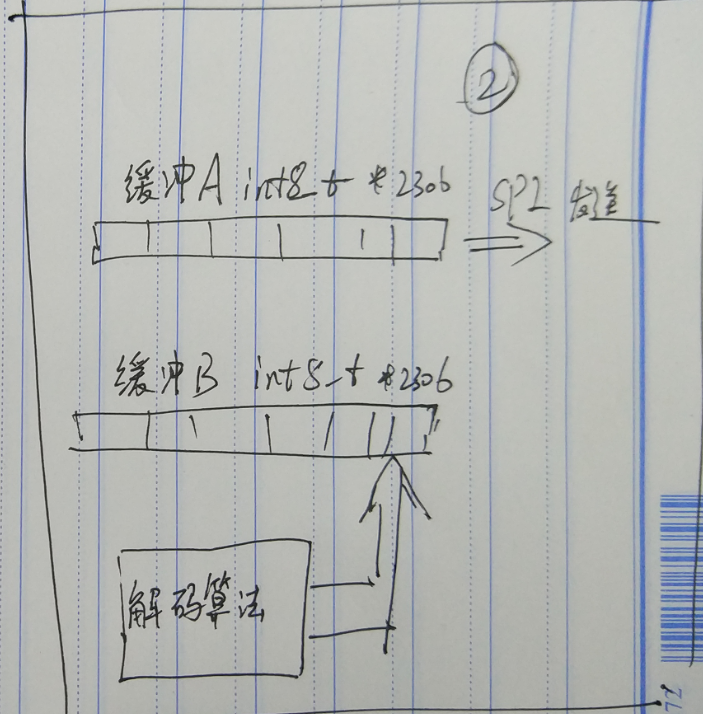 ②
缓冲A int8_t *2306
SPI 发送
缓冲B int8_t *2306
解码算法
72